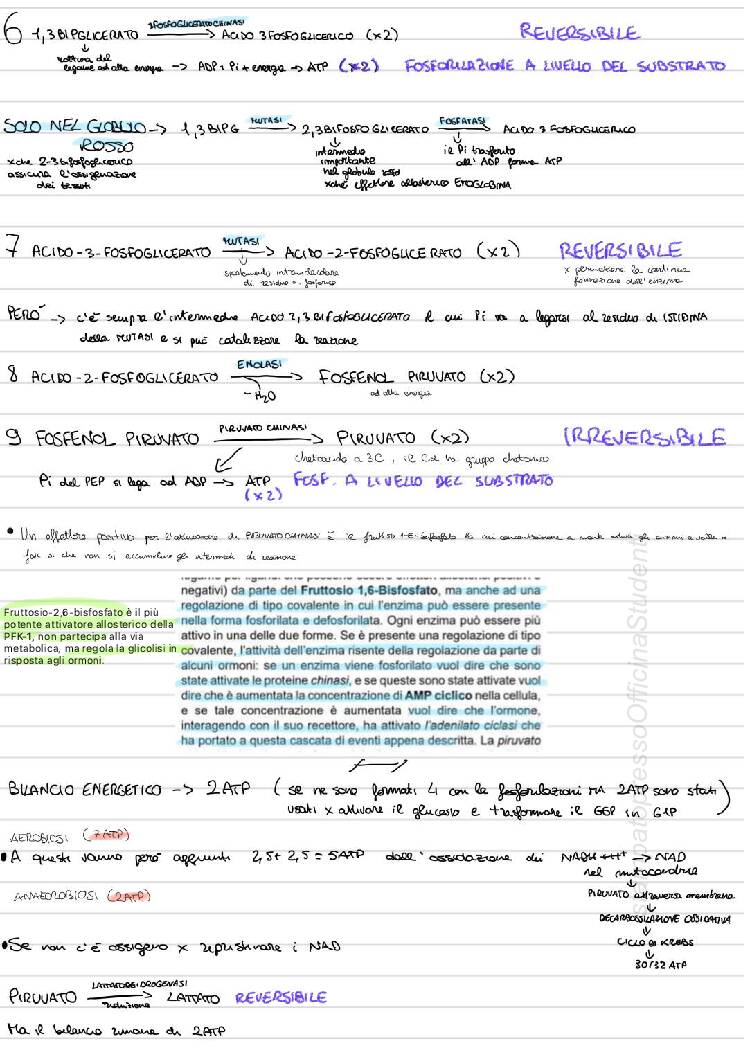 6 1,3 BIPGLICERATO 3FOSFOGLICERATOCHINASI → ACIDO 3FOSFOGLICERICO (x2) REVERSIBILE
rottura del
legame ad alta energia → ADP + Pi + energia → ATP (x2) FOSFORILAZIONE A LIVELLO DEL SUBSTRATO
SOLO NEL GLOBULO → 1,3 BIPG MUTASI → 2,3 BIFOSFOGLICERATO FOSFATASI → ACIDO 3 FOSFOGLICERICO
ROSSO
xché 2-3 bifosfoglicerico
assicura l'ossigenazione
dei tessuti
intermedio
importante
nel globulo
xché effettore allosterico EMOGLOBINA
il Pi trasferito
all'ADP forma ATP
7 ACIDO-3-FOSFOGLICERATO MUTASI → ACIDO-2-FOSFOGLICERATO (x2) REVERSIBILE
spostamento intramolecolare
di residuo fosforico
x permettere la continua
formazione dell'enzima
PERÒ → c'è sempre l'intermedio ACIDO 2,3 BIFOSFOGLICERATO il cui Pi va a legarsi al residuo di ISTIDINA
della MUTASI e si può catalizzare la reazione
8 ACIDO-2-FOSFOGLICERATO ENOLASI → FOSFENOL PIRUVATO (x2)
-H2O
ad alta energia
9 FOSFENOL PIRUVATO PIRUVATO CHINASI → PIRUVATO (x2) IRREVERSIBILE
chetoacido a 3C, il C2 ha gruppo chetonico
Pi del PEP si lega ad ADP → ATP FOSF. A LIVELLO DEL SUBSTRATO
(x2)
• Un effettore positivo per l'attivazione di PIRUVATOCHINASI È il fruttosio 1-6-bifosfato
fare sì che non si accumulino gli intermedi di reazione
negativi) da parte del Fruttosio 1,6-Bisfosfato, ma anche ad una
regolazione di tipo covalente in cui l'enzima può essere presente
nella forma fosforilata e defosforilata. Ogni enzima può essere più
attivo in una delle due forme. Se è presente una regolazione di tipo
covalente, l'attività dell'enzima risente della regolazione da parte di
alcuni ormoni: se un enzima viene fosforilato vuol dire che sono
state attivate le proteine chinasi, e se queste sono attivate vuol
dire che è aumentata la concentrazione di AMP ciclico nella cellula,
e se tale concentrazione è aumentata vuol dire che l'ormone,
interagendo con il suo recettore, ha attivato l'adenilato ciclasi che
ha portato a questa cascata di eventi appena descritta. La piruvato
Fruttosio-2,6-bisfosfato è il più
potente attivatore allosterico della
PFK-1, non partecipa alla via
metabolica, ma regola la glicolisi in
risposta agli ormoni.
BILANCIO ENERGETICO → 2ATP (se ne sono formati 4 con la fosforilazioni MA 2ATP sono stati
usati x attivare il glucosio e trasformare il G6P in G1P)
AEROBIOSI (7ATP)
• A questi vanno però aggiunti 2,5+2,5 = 5ATP dall'ossidazione dei NADH + H+ → NAD
nel mitocondrio
ANAEROBIOSI (2ATP)
PIRUVATO attraversa membrana
DECARBOSSILAZIONE OSSIDATIVA
CICLO DI KREBS
30/32 ATP
• Se non c'è ossigeno x ripristinare i NAD
PIRUVATO LATTATODEIDROGENASI → LATTATO REVERSIBILE
riduzione
Ma il bilancio rimane di 2ATP